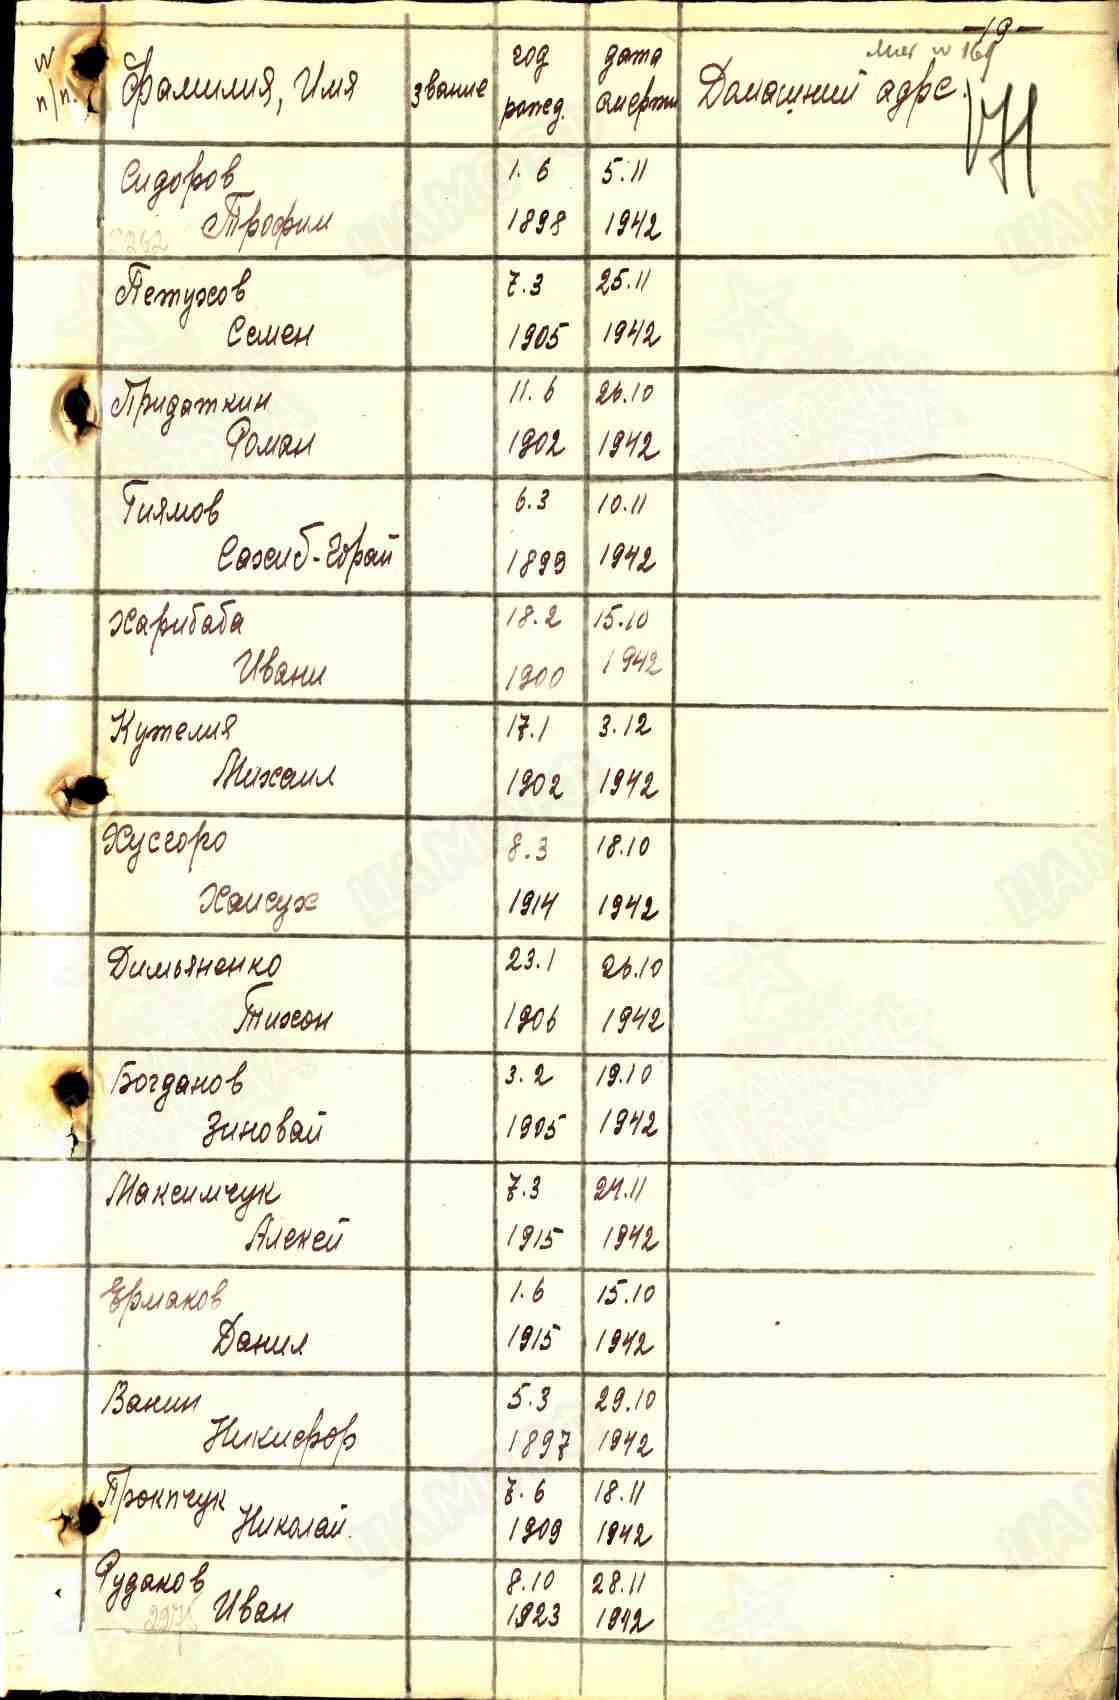 -19-
N п/п. Фамилия, Имя звание год рожд. дата смерти Домашний адрс.
171
Сидоров 1.6 5.11
2262 Трофим 1898 1942
Петухов 7.3 25.11
Семен 1905 1942
Придаткин 11.6 26.10
Роман 1902 1942
Гиямов 6.3 10.11
Сахиб-Герай 1899 1942
Харибаба 18.2 15.10
Ивани 1900 1942
Кужелия 17.1 3.12
Михаил 1902 1942
Хусгоро 8.3 18.10
Хамсух 1914 1942
Димьяненко 23.1 26.10
Тихон 1906 1942
Богданов 3.2 19.10
Зиновай 1905 1942
Максимчук 7.3 24.11
Алексей 1915 1942
Ермаков 1.6 15.10
Данил 1915 1942
Ванин 5.3 29.10
Никифор 1897 1942
Прокпчук 7.6 18.11
Николай. 1909 1942
Рудаков 8.10 28.11
2275 Иван 1923 1942